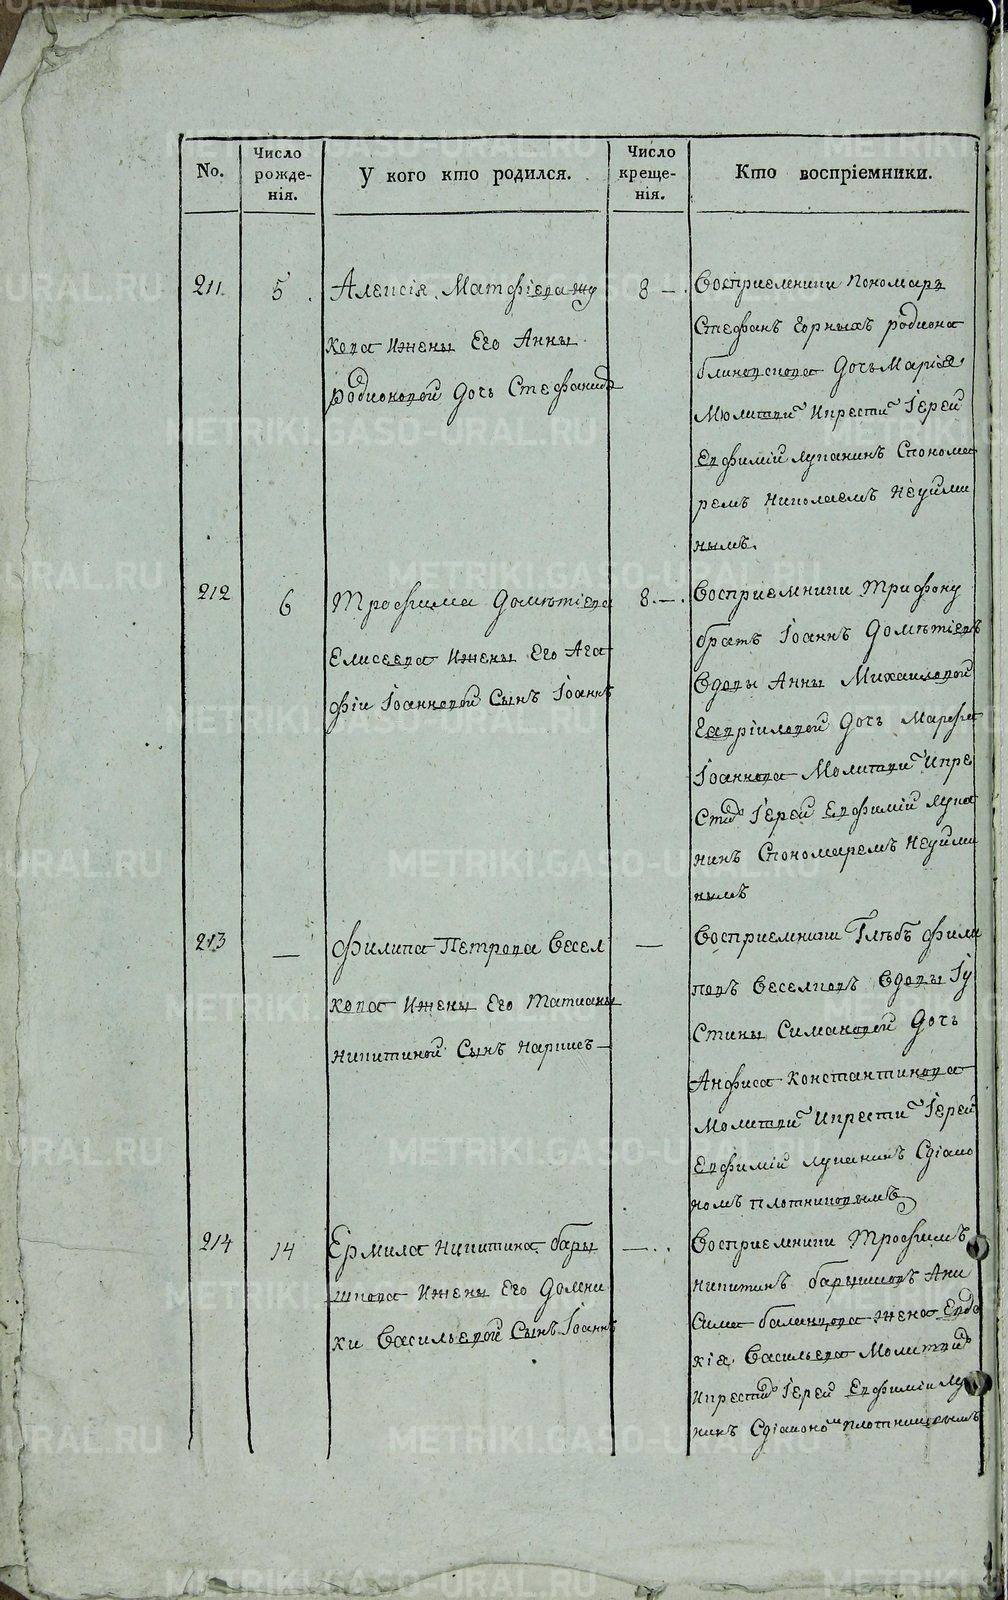 No.
Число рожде-нія.
У кого кто родился.
Число креще-нія.
Кто воспріемники.
211.
5.
Алексія Матфіева Жу
кова Ижены Его Анны
Родионовой Дочь Стефанида
8 —.
Восприемники Пономарь
Стефанъ Горныхъ родиона
блиновскова Дочь Маріа
Молитви Икрести Іерей
Евфимій Лупанинъ Спонома
ремъ Николаемъ Неуйми
нымъ.
212
6
Трофима Дометіева
Елисеева Ижены Его Ага
фіи Іоанновой Сынъ Іоаннъ
8.—.
Восприемники Трифону
братъ Іоаннъ Дометіевъ
Вдовы Анны Михаиловой
Гавріиловой Дочь Марфа
Іоаннова Молитви Икре
Стил Іерей Евфимій Лупа
нинъ Спономаремъ Неуйми
нымъ
213
—
Филипа Петрова Весел
кова Ижены Его Татианы
Никитиной Сынъ Наркисъ —
—
Восприемники Глебъ Фили
повъ Веселковъ Вдовы Іу
Стины Симановой Дочь
Анфиса Константинова
Молитви Икрести Іерей
Евфимій Лупанинъ Сдіако
номъ Плотниковымъ
214
14
Ермила Никитина бары
шкова Ижены Его Домни
ки Васильевой Сынъ Іоаннъ
—..
Восприемники Трофимъ
Никитинъ барышковъ Ани
Сима баланцова жена Евдо
кіа Васильева Молитвил
Икрестил Іерей Евфимій Лупа
нинъ Сдіаконо Плотниковымъ
METRIKI.GASO-URAL.RU